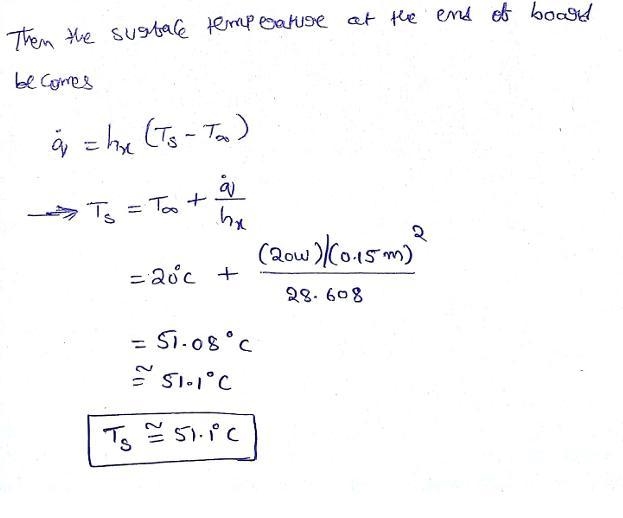 Then the surface temperature at the end of board
becomes
q̇ = hx (Ts - T∞)
→ Ts = T∞ + q̇/hx
= 20°C + (20W)/(0.15m)²/28.608
= 51.08°C
≅ 51.1°C
Ts ≅ 51.1°C